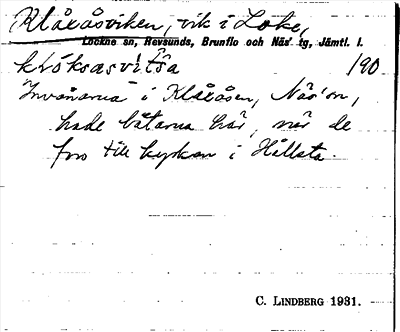 Klåxåsviken, vik i Loke,
Lockne sn, Revsunds, Brunflo och Näs' tg, Jämtl. l.
klóksasvìtʃa /90
Invånarna i Klåxåsen, Näs' sn,
hade båtarna här, när de
foro till kyrkan i Hållsta.
C. LINDBERG 1931.